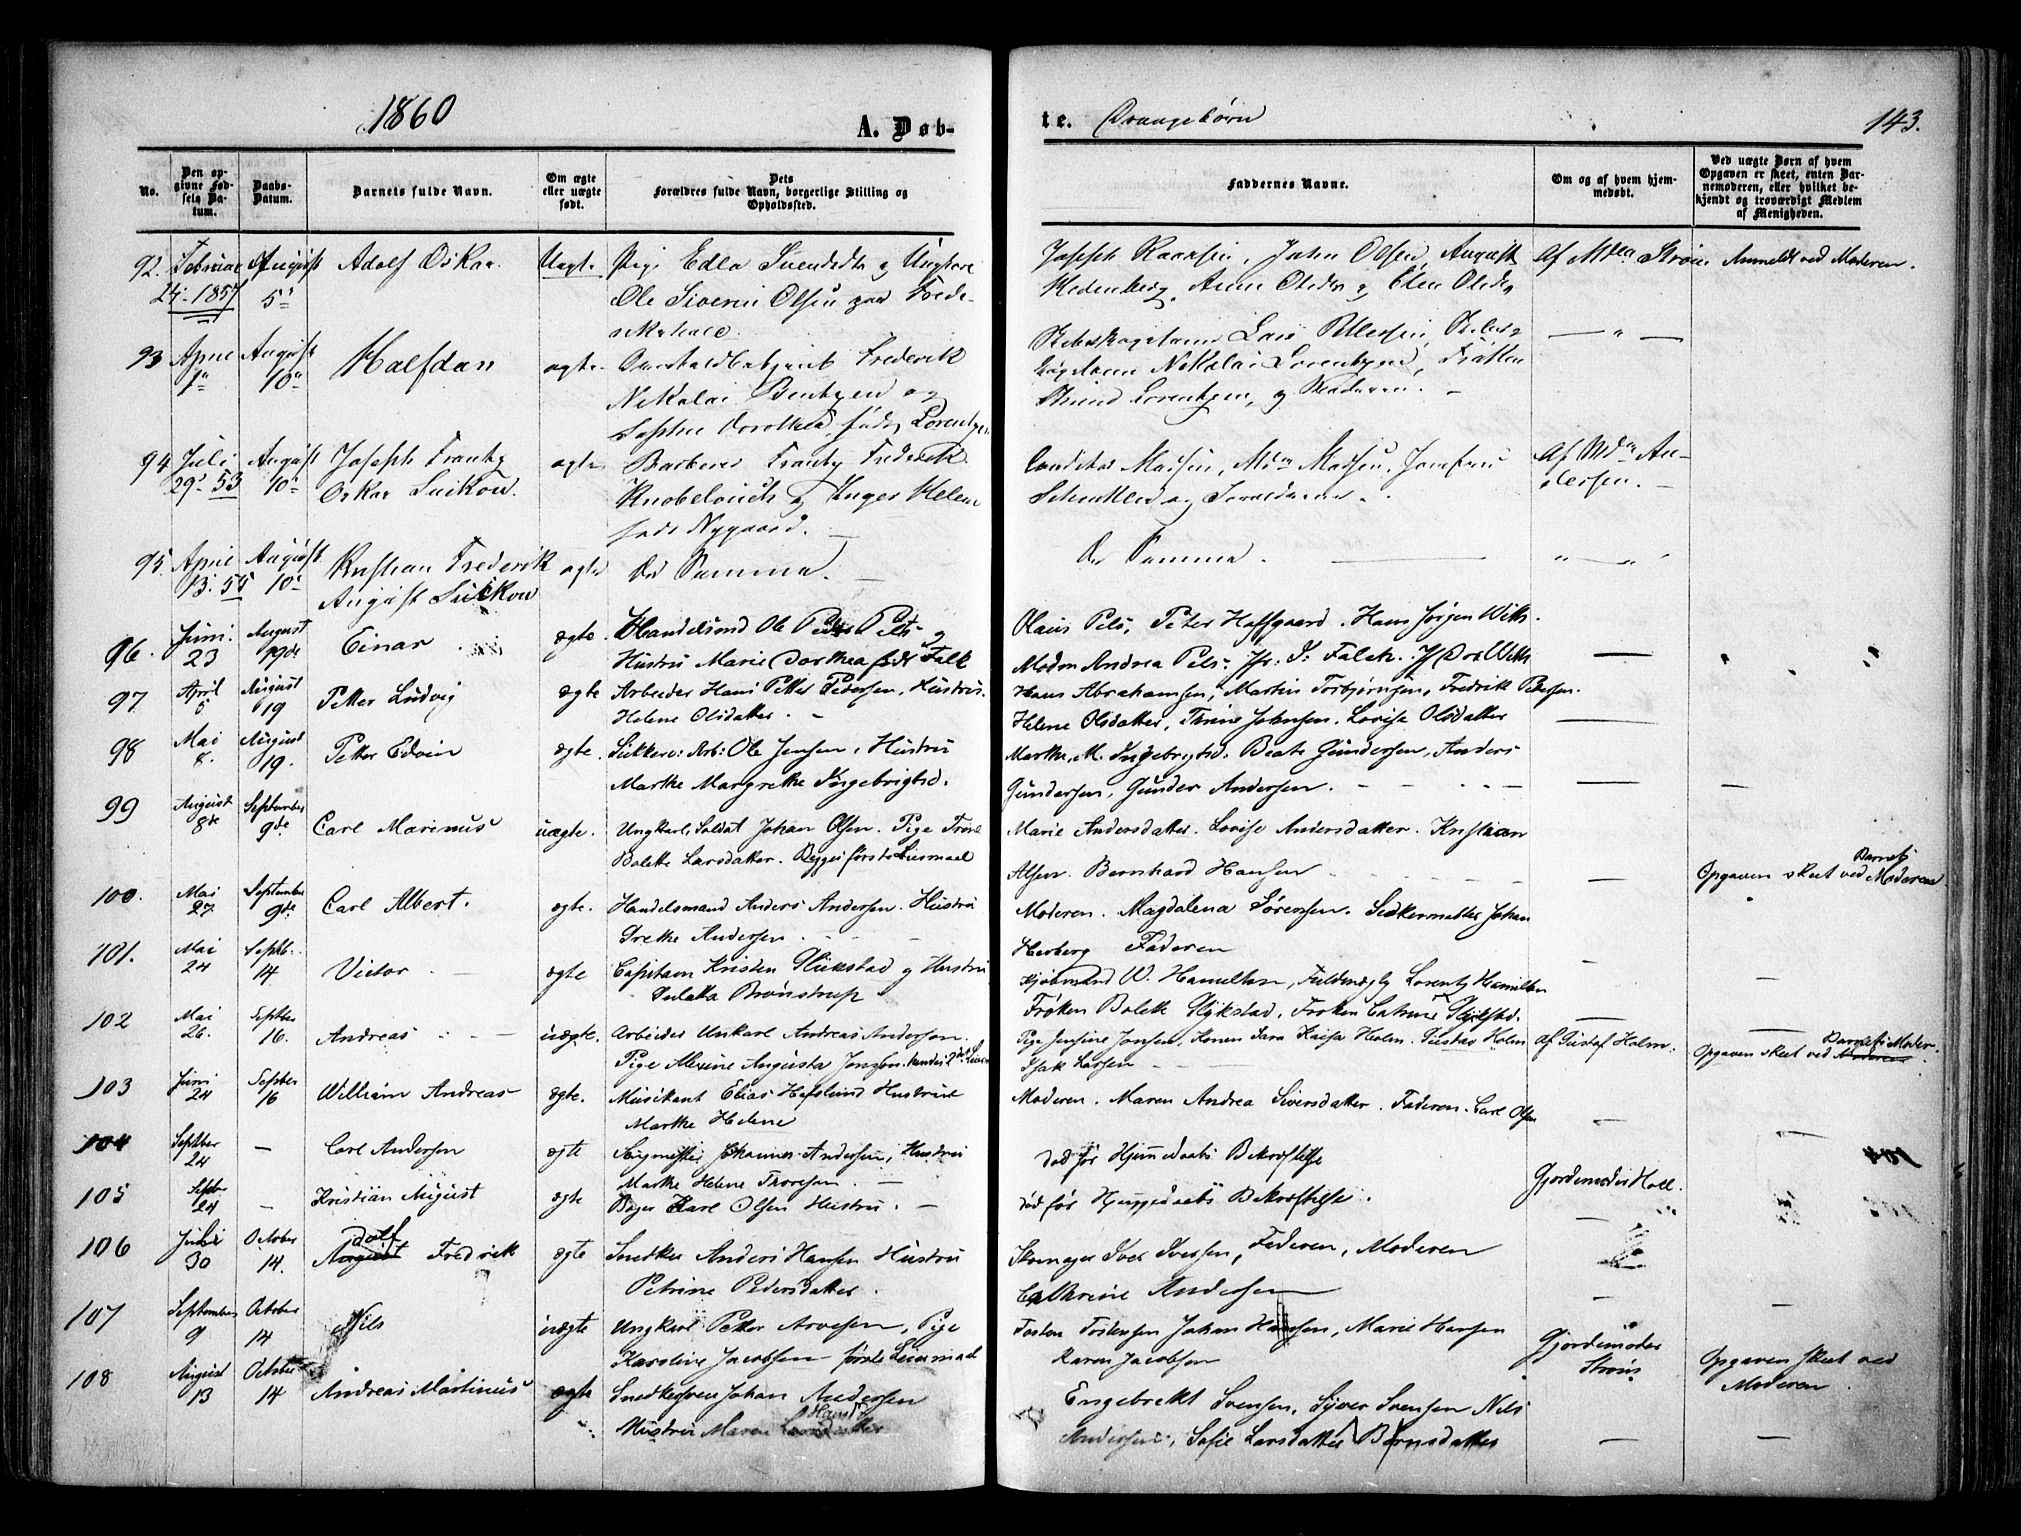 1860
A. Døb-
te. Drengebørn
143.
No.
Den op-
givne Fød-
sels Da-
tum.
Daabs-
Datum.
Barnets fulde Navn.
Om ægte
eller uægte
født.
Dets
Forældres fulde Navn, borgerlige Stilling og
Opholdssted.
Faddernes Navne.
Om og af hvem hjem-
medøbt.
Ved uægte Børn af hvem
Opgaven er skeet, enten Bar-
nemoderen, eller hvilket be-
kjendt og troværdigt Medlem
af Menigheden.
92. Februar August Adolf Oskar Uægte Pige Edla Svendsdtr og Ungkarl
24. 1857 5te
Ole Olsen
Joseph John Olsen, August
Hedenberg, Anne og Elen
Af Strøm Anmeldt ved Moderen.
93 April August Halfdan ægte. Frederik
1te 10de
Nikolai Bentzen og
Sophie Dorothea, født Lorentzen
Lars Pettersen,
Nikolai Lorentzen, Frøken
Lorentzen, og Faderen.
94 Juli August Joseph Frantz ægte Barberer Frantz Frederik
29. 53 10de Oskar Suikow.
Knobelauch og Inger Helene
født Nygaard.
Madsen, Mdm Madsen, Jomfru
og Forældrene.
Af Mdm An-
dersen.
95. April August Kristian Frederik ægte De Samme.
13. 55 10de August Suikow
De Samme.
96. Juni August Einar ægte. Handelsmd Ole Peder Pels og
23 19de
Hustru Marie Dorthea født Falk
Olaus Pels, Peter Haffgaard. Hans Jørgen With.
Madm Andrea Pels. Jfr. J. Falch. With
97 April August Petter Ludvig ægte Arbeider Hans Petter Pedersen, Hustru
5 19
Helene Olsdatter.
Hans Abrahamsen, Martin Torbjørnsen, Fredrik Pettersen.
Helene Olsdatter, Trine Johnsen. Lovise Olsdatter
98 Mai August Petter Edvin ægte. Sukkerv: Arb: Ole Jensen, Hustru
8. 19.
Marthe Margrethe Ingebrigtsd.
Marthe M. Ingebrigtsd. Beate Gundersen, Anders
Gundersen, Gunder Andersen.
99 August September Carl Marinus uægte. Ungkarl, Soldat Johan Olsen. Pige Trine
8de 9de
Bolette Larsdatter. Begges første Leiermaal
Marie Andersdatter. Lovise Andersdatter. Kristian
Olsen. Bernhard Hansen
Opgaven skeet ved Barnets Moderen
100. Mai September Carl Albert. ægte. Handelsmand Anders Andersen. Hustru
27 9de
Grethe Andersen
Moderen. Magdalena Sørensen. Seilermester Johan
Herberg Faderen
101. Mai Septb. Victor ægte Capitain Kristen Glükstad og Hustru
24 14
Brønstrup
Kjøbmand W. Hamilton, Fuldmægtg Lorentz Hamilton
Frøken Bolette Glykstad, Frøken Catrine Glükstad.
102 Mai Septber Andreas uægte. Arbeider Unkarl Andreas Andersen.
26. 16.
Pige Alexine Augusta Jonsson. hendes 2det Leierm
Pige Jensine Jonsen, Konen Sara Kaisa Holm. Gustav Holm
Isak Larsen
af Gustaf Holm. Opgaven skeet ved Barnets Moder.
103 Juni Septber William Andreas ægte. Musikant Elias Hafslund Hustru
24 16
Marthe Helene
Moderen. Maren Andrea Siversdatter. Faderen. Carl Olsen
104 Septber Carl Andersen ægte Johannes Andersen, Hustru
24
Marthe Helene Thoresen.
død før Hjemmedaabs Bekræftelse
105 Septbr Kristian August ægte Bager Karl Olsen Hustru
24
død før Hjemmedaabs Bekræftelse.
Gjordemoder Holl.
106 Juli October Adolf Fredrik ægte Snedker Anders Hansen Hustru
30 14.
Petrine Pedersdatter.
Skomager Iver Iversen, Faderen, Moderen
Cathrine Andersen
107 September October Nils uægte Ungkarl Petter Arvesen, Pige
9 14
Karoline Jacobsen første Leiermaal
Torsten Torstensen Johan Hansen, Marie Hansen
Karen Jacobsen
Gjordemoder
Strøm
Opgaven skeet ved
Moderen
108 August October Andreas Martinius ægte Snedkersven Johan Andersen
13 14
Hustru Maren Hansdatter
Engebrekt Svensen, Syver Svensen Nils
Andersen, Sofie Larsdatter Bernsdatter